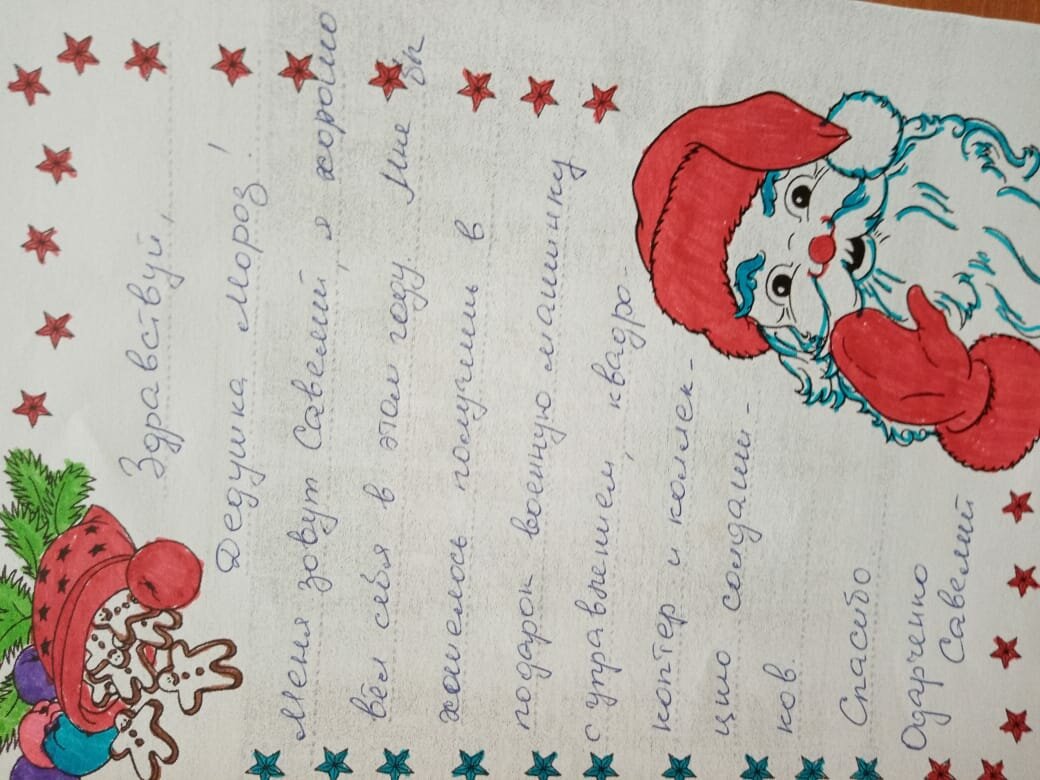 Здравствуй,
Дедушка Мороз!
Меня зовут Савелий, я хорошо
вёл себя в этом году. Мне бы
хотелось получить в
подарок военную машинку
с управлением, квадро-
коптер и коллек-
цию солдати-
ков.
Спасибо
Одарченко
Савелий